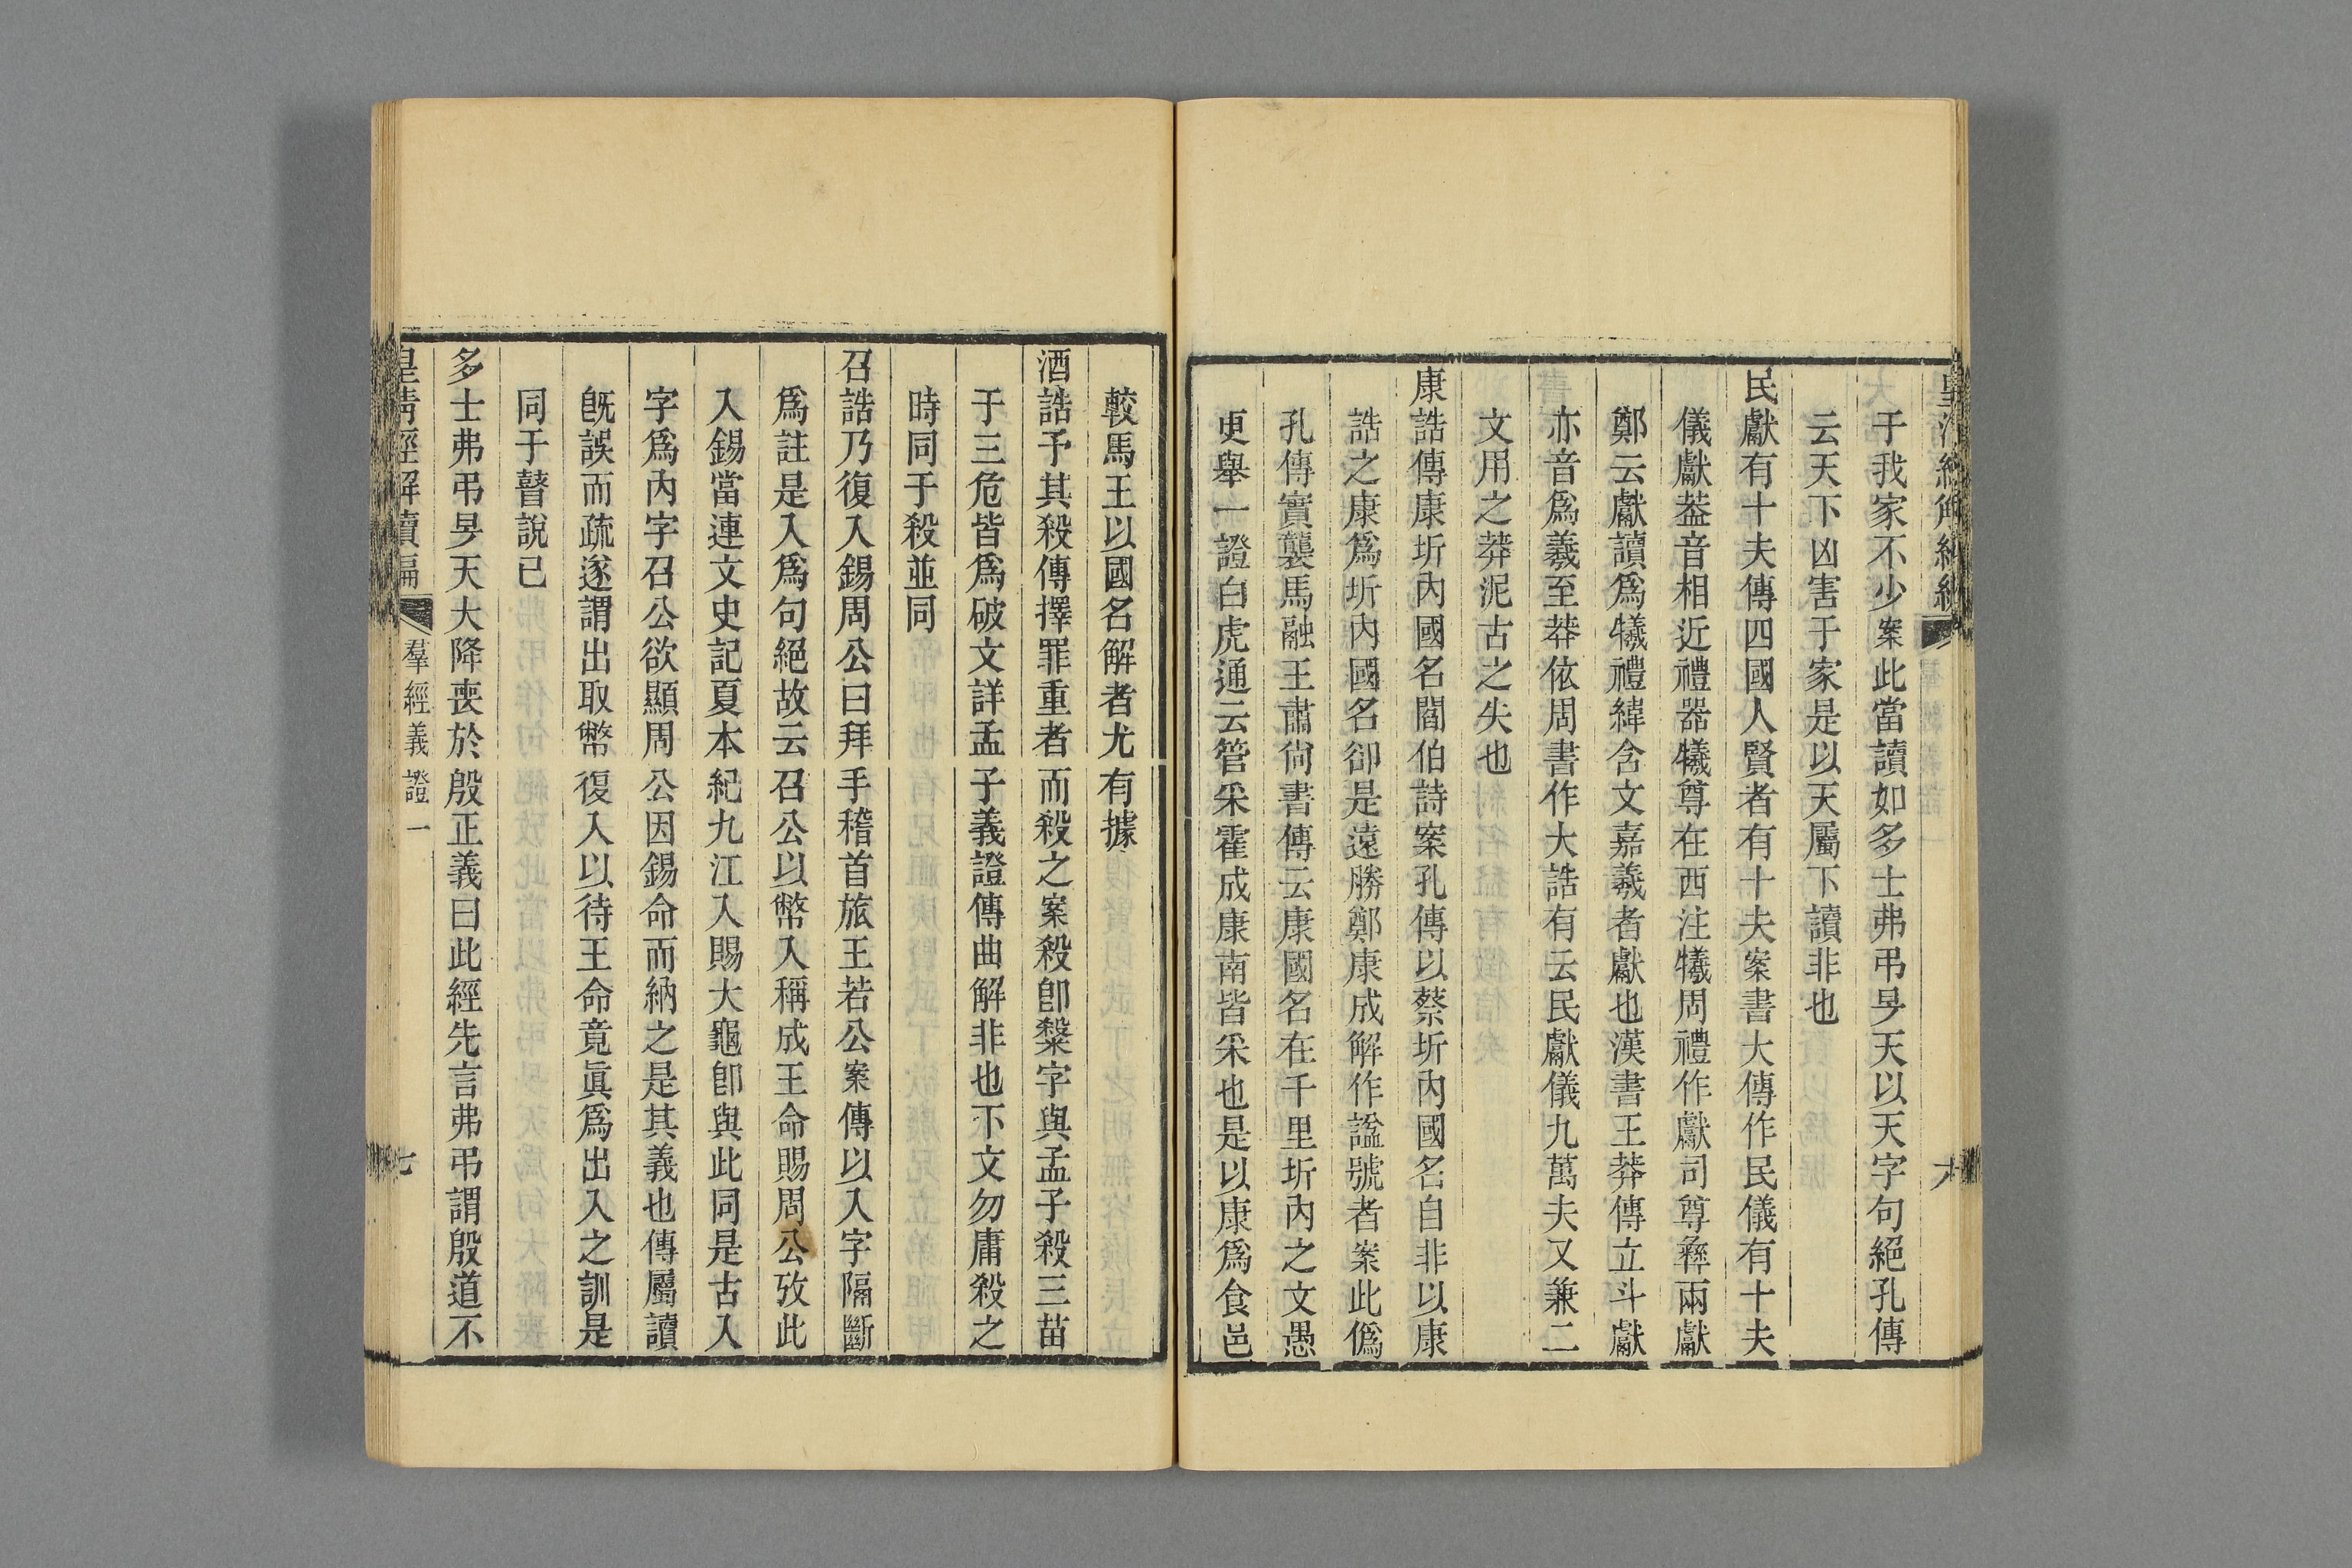 于我家不少案此當讀如多士弗弔旻天以天字句絕孔傳
云天下凶害于家是以天屬下讀非也
民獻有十夫傳四國人賢者有十夫案書大傳作民儀有十夫
儀獻葢音相近禮器犧尊在西注犧周禮作獻司尊彝兩獻
鄭云獻讀爲犧禮緯含文嘉羲者獻也漢書王莽傳立斗獻
亦音爲羲至莽依周書作大誥有云民獻儀九萬夫又兼二
文用之莽泥古之失也
康誥傳康圻內國名閻伯詩案孔傳以蔡圻內國名自非以康
誥之康爲圻內國名卻是遠勝鄭康成解作諡號者案此僞
孔傳實襲馬融王肅尙書傳云康國名在千里圻內之文愚
更舉一證白虎通云管采霍成康南皆采也是以康爲食邑
較馬王以國名解者尤有據
酒誥予其殺傳擇罪重者而殺之案殺卽𥻦字與孟子殺三苗
于三危皆爲破文詳孟子義證傳曲解非也下文勿庸殺之
時同于殺並同
召誥乃復入錫周公曰拜手稽首旅王若公案傳以入字隔斷
爲註是入爲句絕故云召公以幣入稱成王命賜周公攷此
入錫當連文史記夏本紀九江入賜大龜卽與此同是古入
字爲內字召公欲顯周公因錫命而納之是其義也傳屬讀
旣誤而疏遂謂出取幣復入以待王命竟眞爲出入之訓是
同于瞽說已
多士弗弔旻天大降喪於殷正義曰此經先言弗弔謂殷道不
皇清經解續編
羣經義證一
七